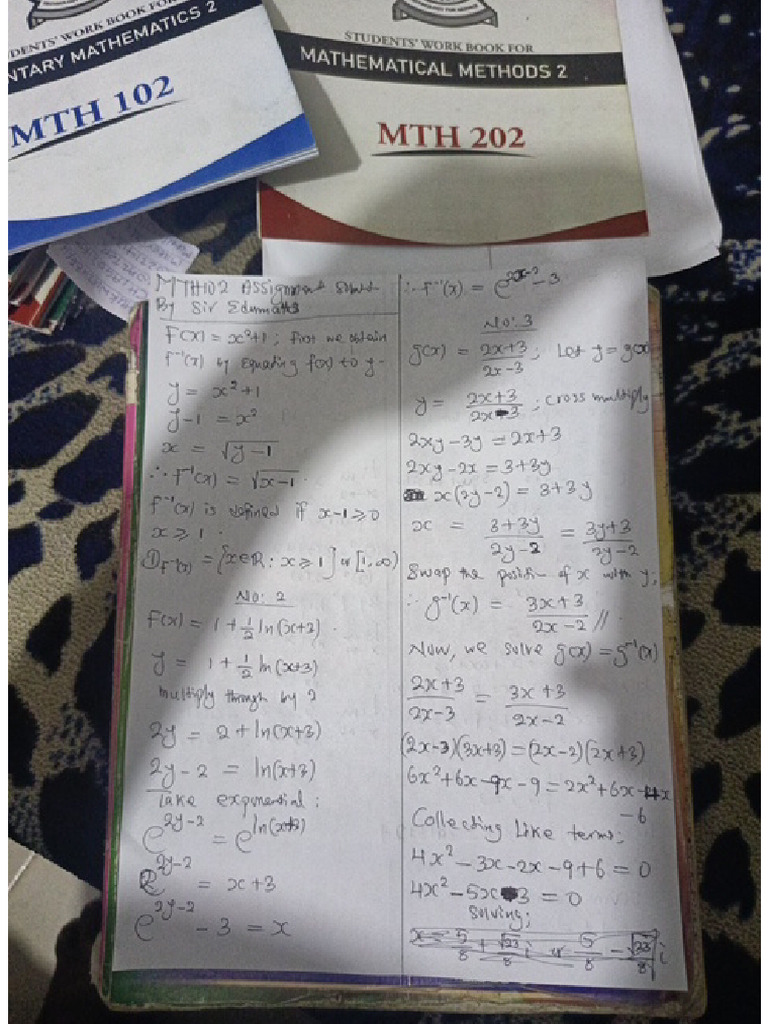 STUDENTS' WORK BOOK FOR
MATHEMATICAL METHODS 2
MTH 202
DENTS' WORK BOOK FOR
NTARY MATHEMATICS 2
MTH 102
MTH102 Assignment Solved
By Sir Edumaths
F(x) = x²+1; first we obtain
f⁻¹(x) by equating f(x) to y-
y = x²+1
y-1 = x²
x = √y-1
∴ f⁻¹(x) = √x-1.
f⁻¹(x) is defined if x-1 ≥ 0
x ≥ 1.
① F⁻¹(x) = {x∈R : x ≥ 1} or [1, ∞)
No: 2
F(x) = 1 + 1/2 ln(x+3).
y = 1 + 1/2 ln(x+3)
multiply through by 2
2y = 2 + ln(x+3)
2y-2 = ln(x+3)
Take exponential:
e^2y-2 = e^ln(x+3)
e^2y-2 = x+3
e^2y-2 - 3 = x
∴ F⁻¹(x) = e^2x-2 - 3
No: 3
g(x) = 2x+3/2x-3; Let y = g(x)
y = 2x+3/2x-3; cross multiply
2xy-3y = 2x+3
2xy-2x = 3+3y
x(2y-2) = 3+3y
x = 3+3y/2y-2 = 3y+3/2y-2
Swap the position of x with y;
∴ g⁻¹(x) = 3x+3/2x-2 //
Now, we solve g(x) = g⁻¹(x)
2x+3/2x-3 = 3x+3/2x-2
(2x-3)(3x+3) = (2x-2)(2x+3)
6x²+6x-9x-9 = 2x²+6x-4x
-6
Collecting Like terms;
4x²-3x-2x-9+6 = 0
4x²-5x-3 = 0
Solving;
x = 5/8 + √23/8 i or 5/8 - √23/8 i